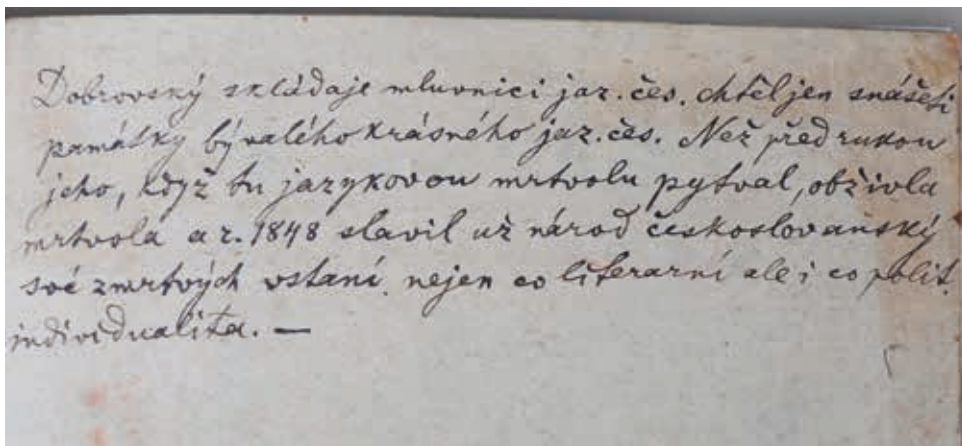 Dobrovský skládaje mluvnici jaz. čes. chtěl jen snášeti
památky bývalého krásného jaz. čes. Než před rukou
jeho, když tu jazykovou mrtvolu pytval, obživla
mrtvola a r. 1848 slavil už národ českoslovanský
své zmrtvých vstaní. nejen co literarní ale i co polit.
individualita. —